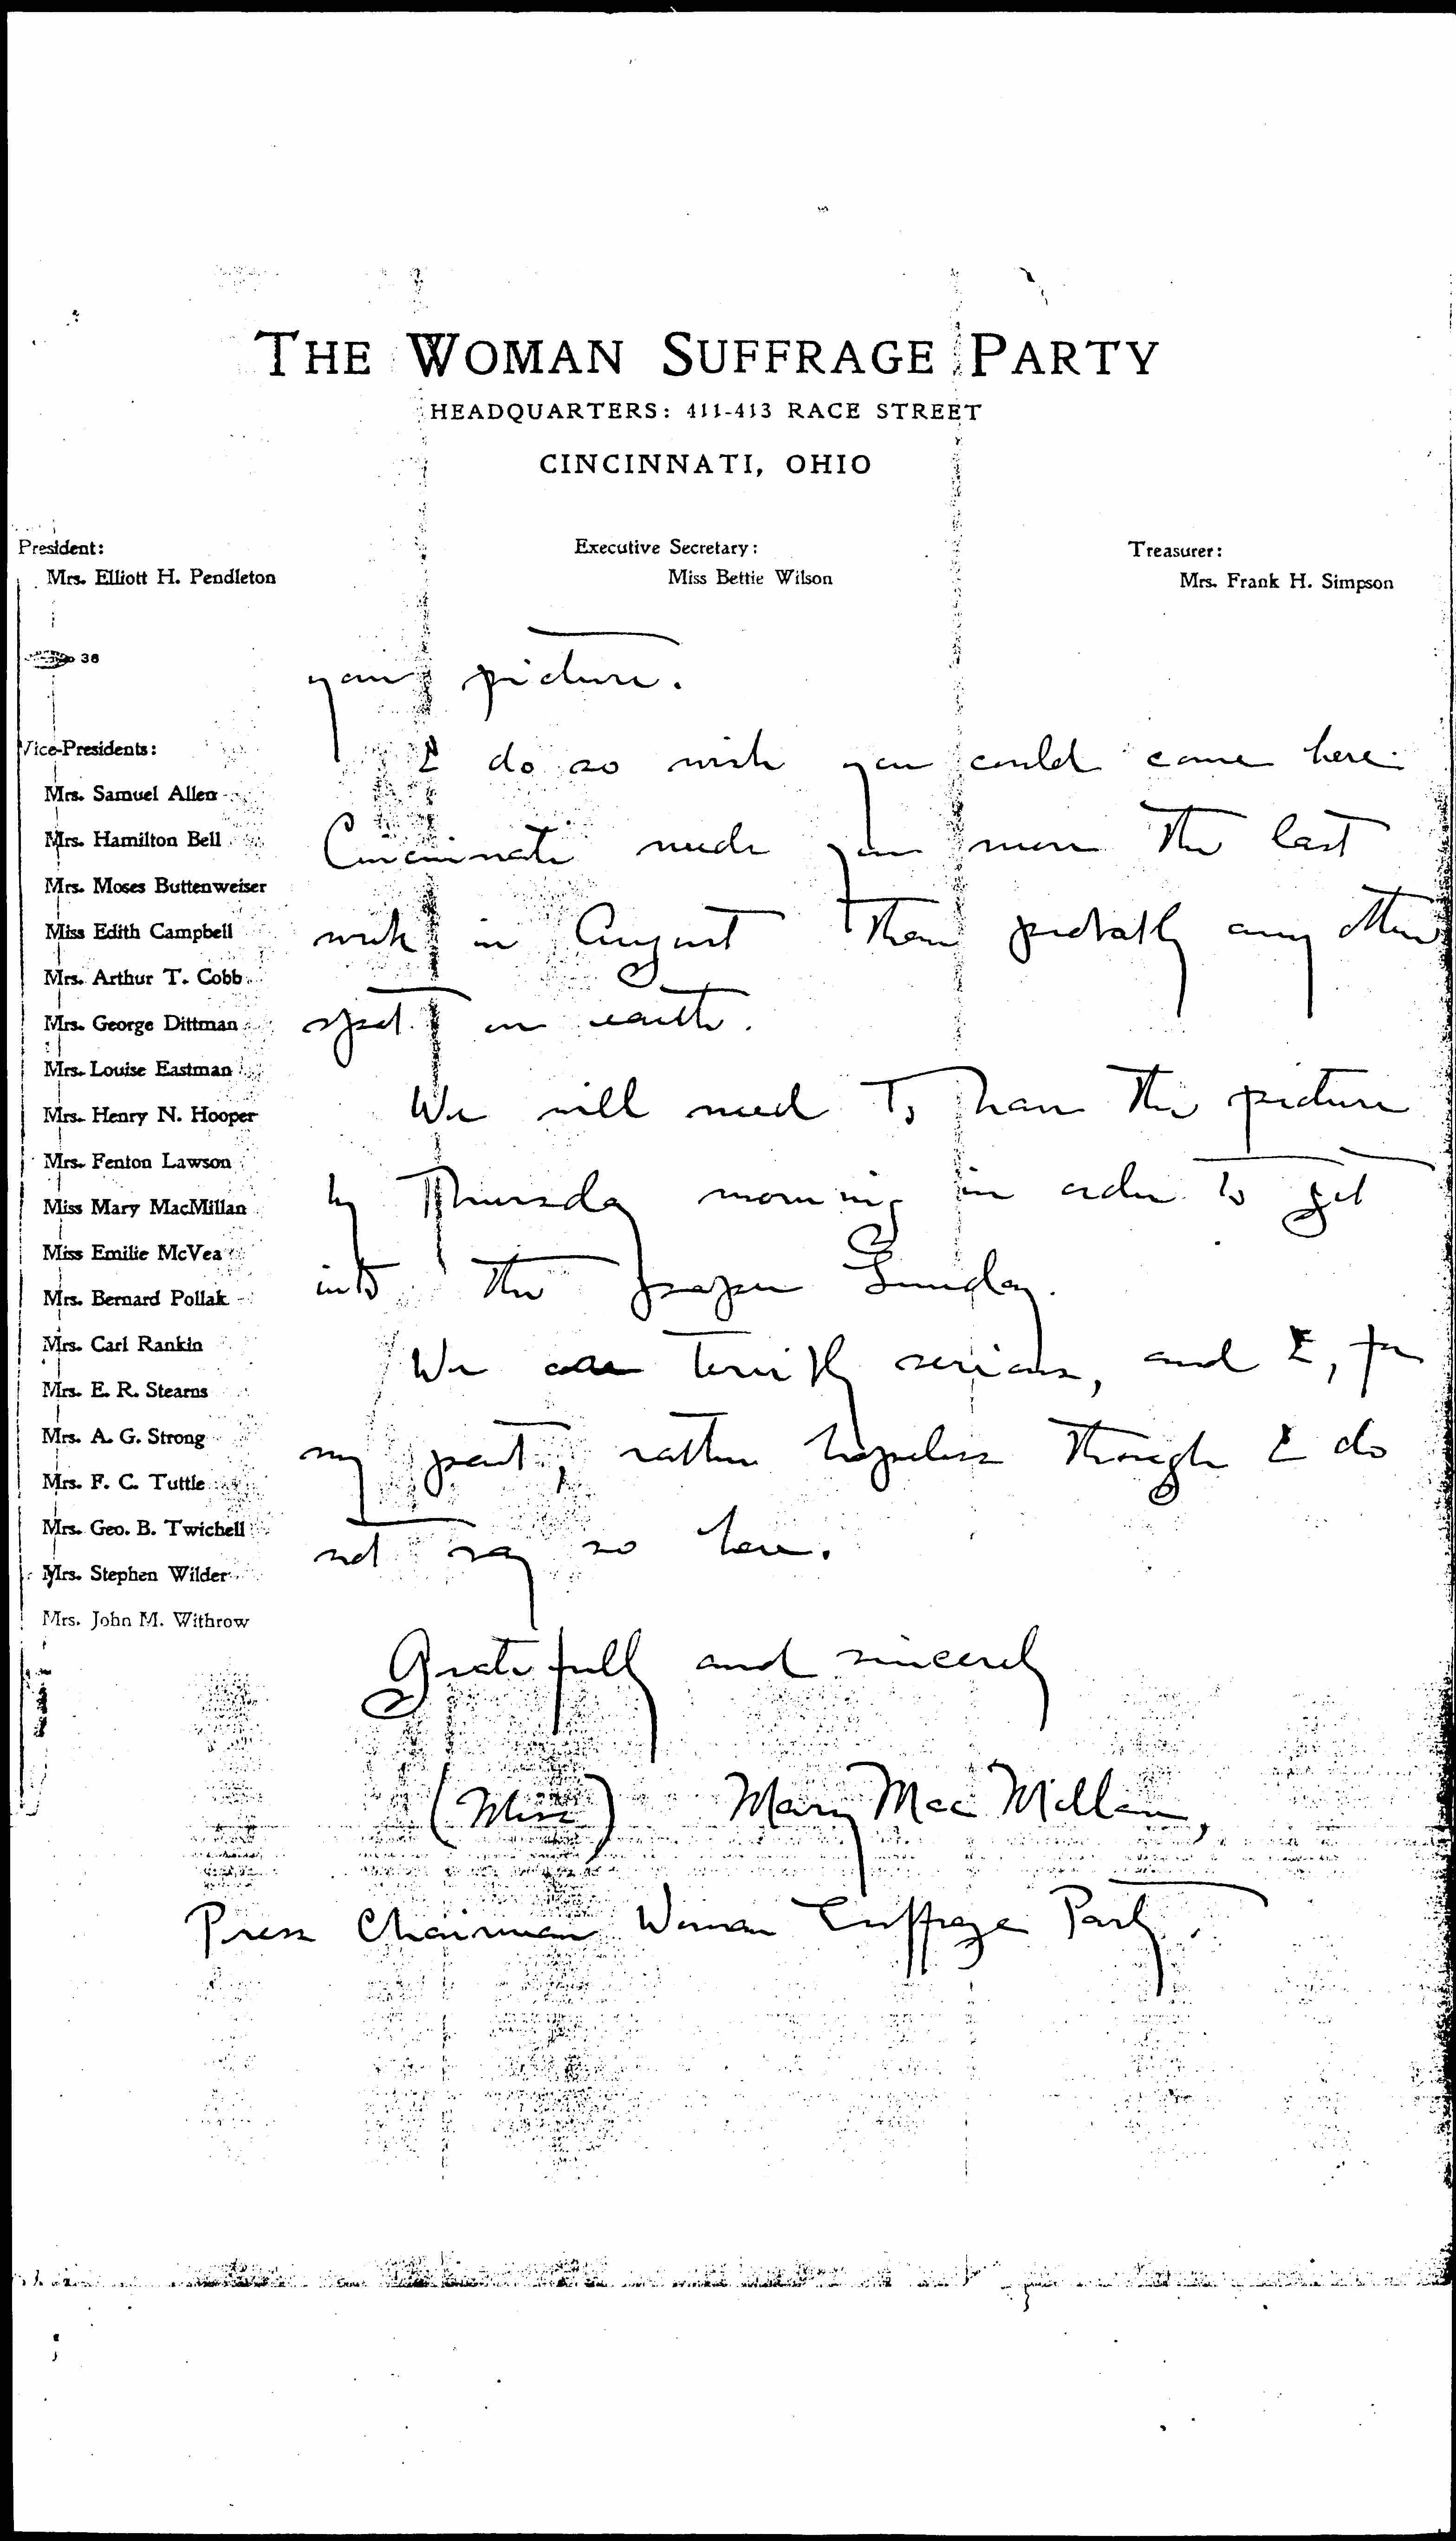 THE WOMAN SUFFRAGE PARTY
HEADQUARTERS: 411-413 RACE STREET
CINCINNATI, OHIO
President:
Mrs. Elliott H. Pendleton
Executive Secretary:
Miss Bettie Wilson
Treasurer:
Mrs. Frank H. Simpson
38
Vice-Presidents:
Mrs. Samuel Allen
Mrs. Hamilton Bell
Mrs. Moses Buttenweiser
Miss Edith Campbell
Mrs. Arthur T. Cobb
Mrs. George Dittman
Mrs. Louise Eastman
Mrs. Henry N. Hooper
Mrs. Fenton Lawson
Miss Mary MacMillan
Miss Emilie McVea
Mrs. Bernard Pollak
Mrs. Carl Rankin
Mrs. E. R. Stearns
Mrs. A. G. Strong
Mrs. F. C. Tuttle
Mrs. Geo. B. Twichell
Mrs. Stephen Wilder
Mrs. John M. Withrow
your picture.
I do so wish you could come here.
Cincinnati needs you more the last
week in August than probably any other
spot on earth.
We will need to have the picture
by Thursday morning in order to get
into the paper Sunday.
We are terribly serious, and I, for
my part, rather hopeless though I do
not say so here.
Gratefully and sincerely
(Miss) Mary MacMillan,
Press Chairman Woman Suffrage Party.